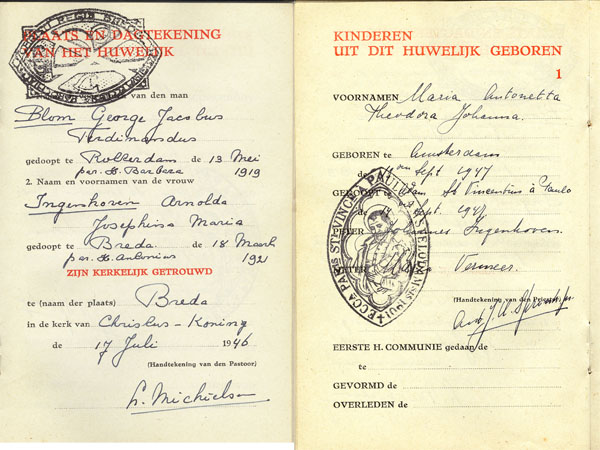 PLAATS EN DAGTEKENING
VAN HET HUWELIJK
van den man
Blom George Jacobus
Ferdinandus
gedoopt te Rotterdam de 13 Mei
par. H. Barbara 1919
2. Naam en voornamen van de vrouw
Ingenhoven Arnolda
Josephina Maria
gedoopt te Breda de 18 Maart
par. H. Antonius 1921
ZIJN KERKELIJK GETROUWD
te (naam der plaats) Breda
in de kerk van Christus-Koning
de 17 Juli 1946
(Handtekening van den Pastoor)
Michielsen
KINDEREN
UIT DIT HUWELIJK GEBOREN
1
VOORNAMEN Maria Antonetta
Theodora Johanna.
GEBOREN TE Amsterdam
de Sept 1947
GEDOOPT te St Vincentius à Paulo
Sept. 1947
PETER Johannes Ingenhoven
METER Vermeer.
(Handtekening van den Priester)
EERSTE H. COMMUNIE gedaan de
te
GEVORMD de
OVERLEDEN de